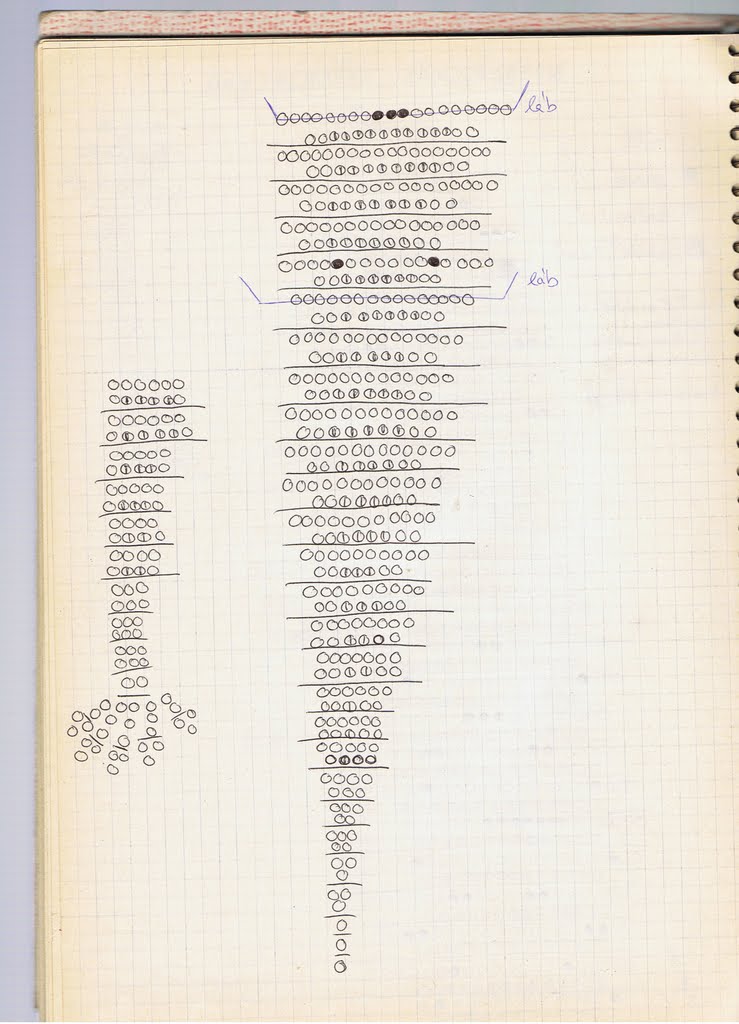 láb
láb